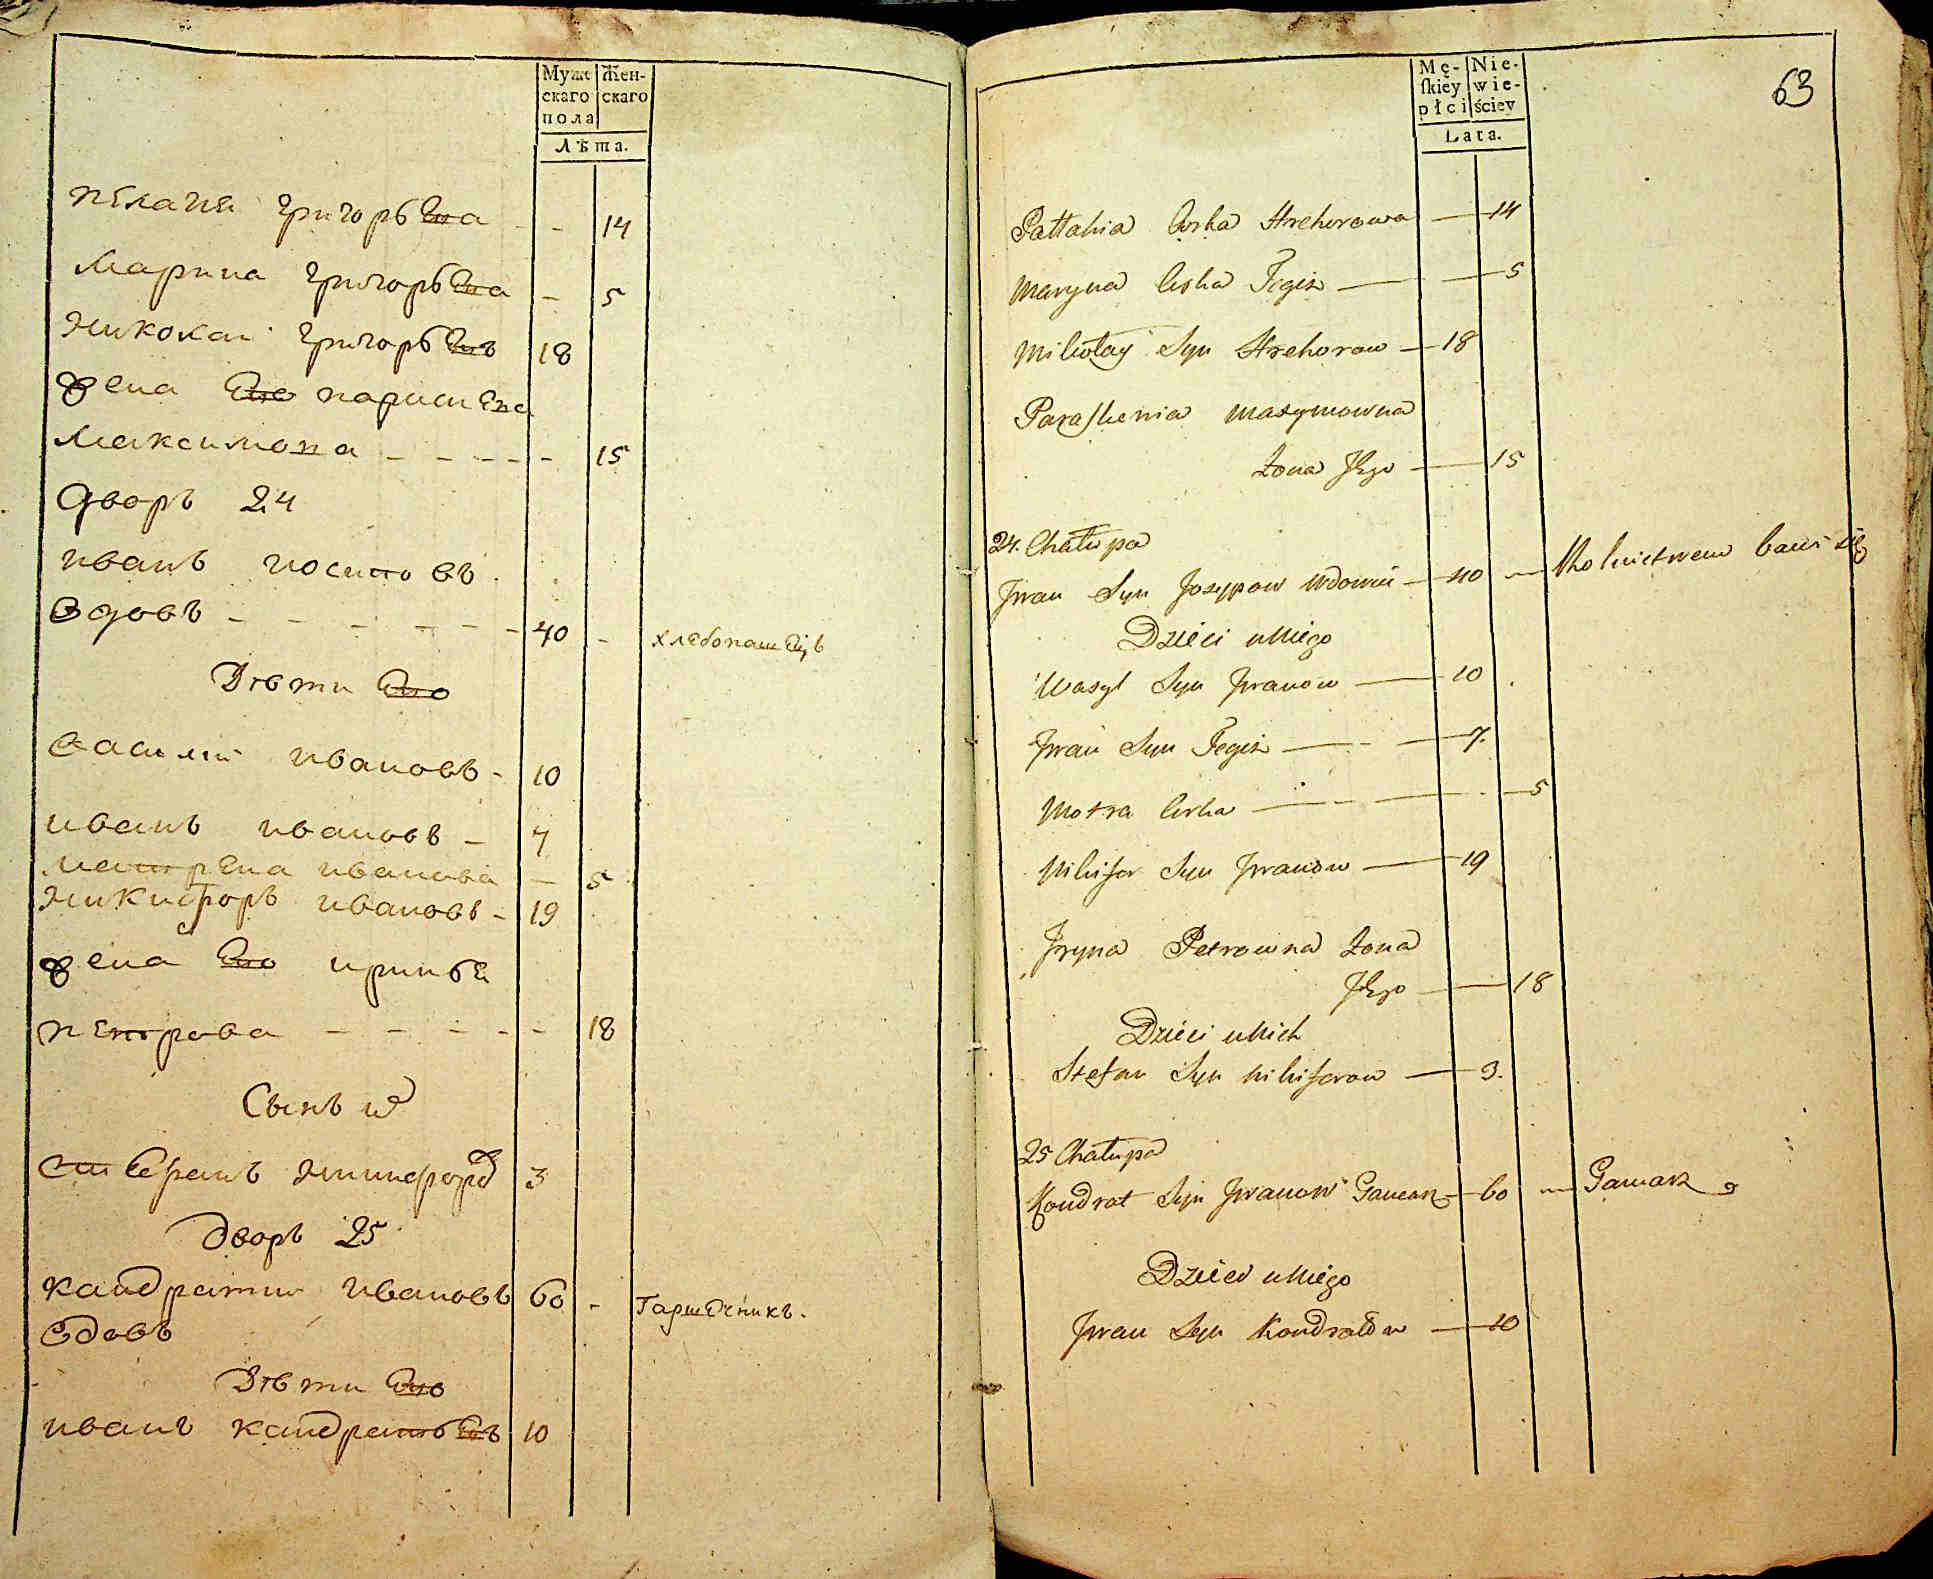 Муже Жен-
скаго скаго
пола
Лѣта.
пелагея григорьева - - 14
Марина григорьева - 5
николаи григорьевъ 18
жена его
Максимова - - - - - 15
дворъ 24
иванъ иосиповъ
вдовъ - - - - - - 40 - хлебопашецъ
Дѣти его
василий ивановъ - 10
иванъ ивановъ - 7
матрена иванова - 5
никифоръ ивановъ - 19
жена его
петрова - - - - - 18
Сынъ их
стефанъ 3
дворъ 25
кандратии ивановъ 60 - Гаршечникъ.
вдовъ
Дѣти его
иванъ кандратьевъ 10
63
Mę- Nie-
ſkiey wie-
płci ściey
Lata.
Pałłahia Corka Hrehorowa — 14
Maryna Corka Tegiż — 5
Mikołay Syn Hrehorow — 18
Paraſkewia
Żona Jego — 15
24. Chałupa
Jwan Syn Jozypow Wdowiec — 40 — Rolnictwem bawi się
Dzieci u Niego
Wasyl Syn Jwanow — 10
Jwan Syn Tegiż — 7.
Motra Corka — 5
Nikifor Syn Jwanow — 19
Jryna Petrowna Żona
Jego — 18
Dzieci u Nich
Stefan Syn Nikiforow — 3.
25 Chałupa
Kondrat Syn Jwanow Gancarz — 60 — Garnarz
Dzieci u Niego
Jwan Syn Kondratow — 10